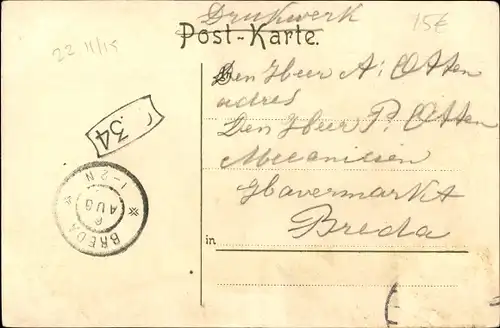 Drukwerk
15€
Post-Karte.
22 11/15
Den Heer A: Otten
adres
Den Heer P. Otten
Mecanicien
Havermarkt
in Breda
34
BREDA
6 AUG
1-2 N